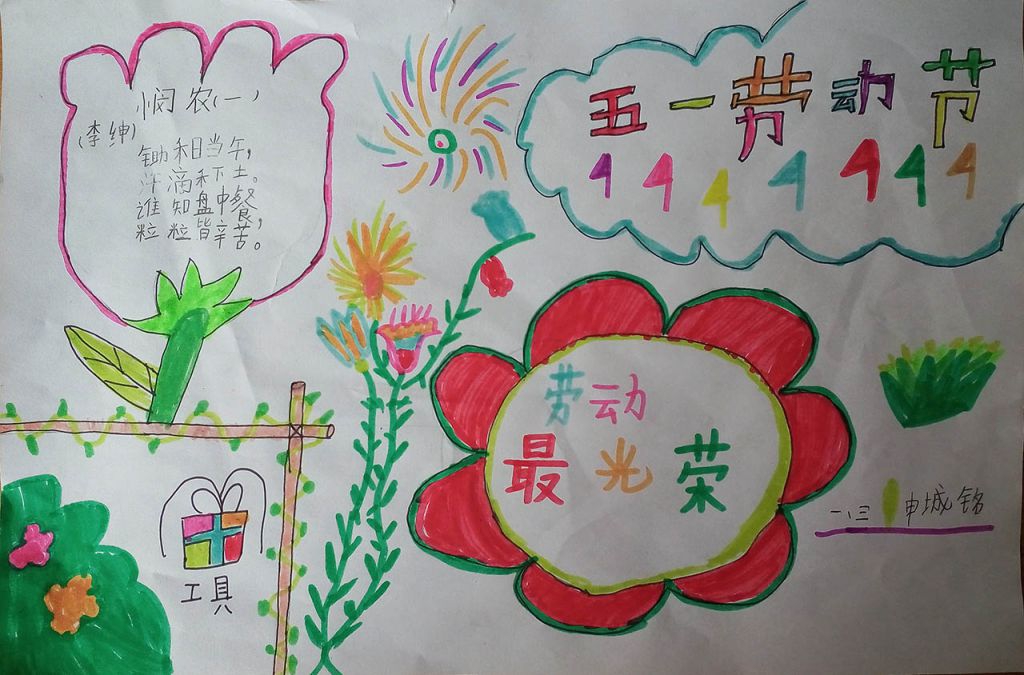 悯农(一)
(李绅)
锄禾日当午,
汗滴禾下土。
谁知盘中餐,
粒粒皆辛苦。
五一劳动节
劳动
最光荣
工具
一、三 申城铭